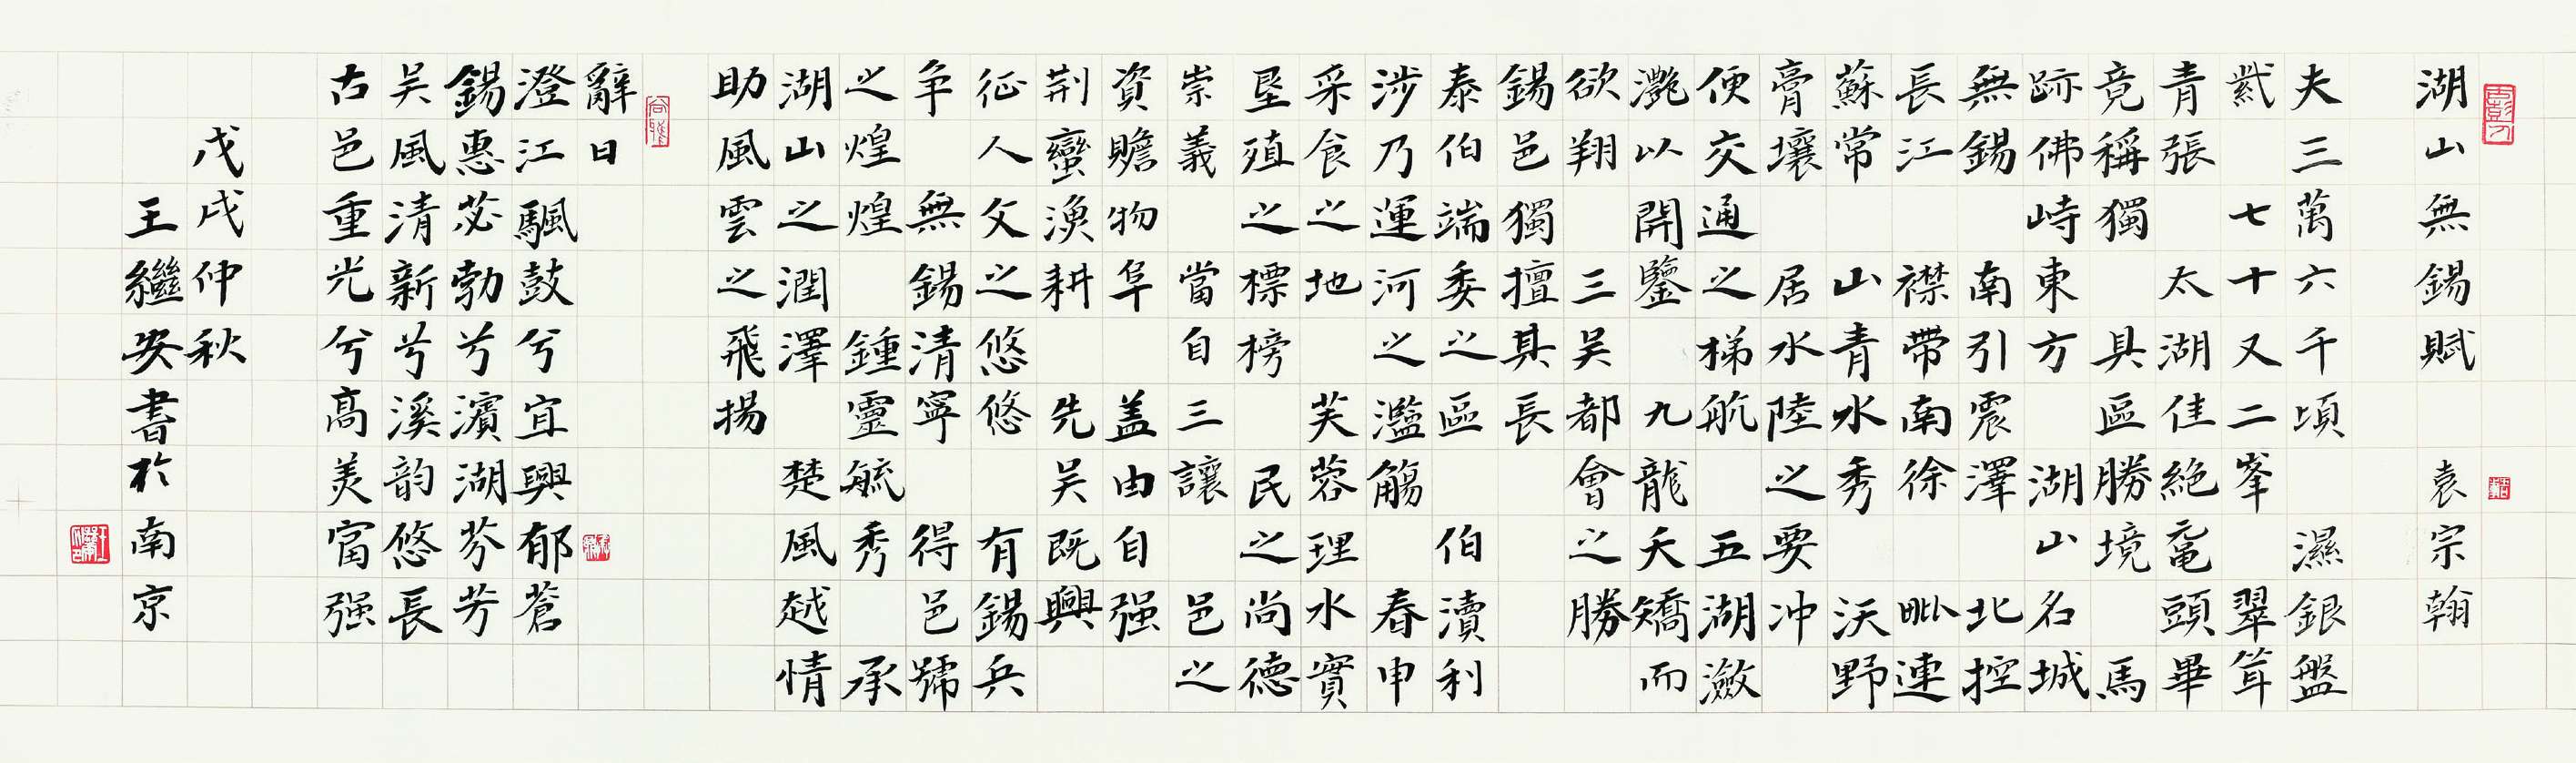 湖山無錫賦 袁宗翰
夫三萬六千頃 濕銀盤
七十又二峯 翠聳
青張 太湖佳絶黿頭畢
竟稱獨 具區勝境 馬
跡佛峙東方 湖山名城
無錫南引震澤北控
長江 襟帶南徐毗連
蘇常 山青水秀 沃野
膏壤 居水陸之要冲
便交通之梯航 五湖瀲
灧以開鑒九龍夭矯而
欲翔 三吳都會之勝
錫邑獨擅其長
泰伯端委之區 伯瀆利
涉乃運河之濫觴 春申
采食之地 芙蓉理水實
垦殖之標榜 民之尚德
崇義 當自三讓 邑之
資贍物阜 盖由自强
荆蠻漁耕 先吳既興
征人文之悠悠 有錫兵
争 無錫清寧 得邑號
之煌煌 鍾靈毓秀 承
湖山之潤澤 楚風越情
助風雲之飛揚
辭曰
澄江颿鼓兮宜興郁蒼
錫惠苾勃兮濱湖芬芳
吳風清新兮溪韵悠長
古邑重光兮高美富强
戊戌仲秋
王繼安書於南京